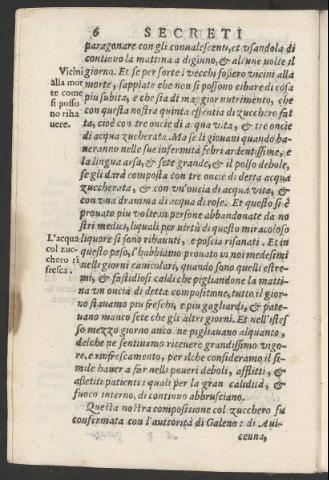 6 SECRETI
paragonare con gli conualescenti, et vsandola di
continuo la mattina a digiuno, & alcune uolte il
giorno. Et se per sorte i vecchi fossero vicini alla
morte, sappiate che non si possono cibare di cosa
piu subita, e che sia di maggior nutrimento, che
con questa nostra quinta essentia di zucchero fat
ta, cioè con tre oncie di acqua vita, & tre oncie
di acqua zucherata. Ma se li giouani quando ha-
ueranno nelle sue infermità febri ardentissime, e
la lingua arsa, & sete grande, & il polso debole,
se gli darà composta con tre oncie di detta acqua
zuccherata, & con vn'oncia di acqua vita, &
con vna dramma di acqua di rose. Et questo si è
prouato piu volte in persone abbandonate da no
stri medici, li quali per uirtù di questo miracoloso
liquore si sono rihauuti, e poscia risanati. Et in
questo peso, l'habbiamo prouato in noi medesimi
nelli giorni canicolari, quando sono quelli estre-
mi, & fastidiosi caldi che pigliandone la matti-
na vn oncia di detta compositione, tutto il gior-
no stauamo piu freschi, e piu gagliardi, & pate-
uamo manco sete che gli altri giorni. Et nell'istes
so mezzo giorno anco ne pigliauamo alquanto,
delche ne sentiuamo riceuere grandissimo vigo-
re, e rinfrescamento, per ilche consideramo il si-
mile hauer a far nelli poueri deboli, afflitti, &
assetiti patienti: quali per la gran calidità, &
fuoco interno, di continuo abbrusciano.
Questa nostra compositione col zucchero fu
confermata con l'auttorità di Galeno: di Aui-
cenna,
Vicini
alla mor
te come
si posso
no riha
uere.
L'acqua
col zuc-
chero ri
fresca.